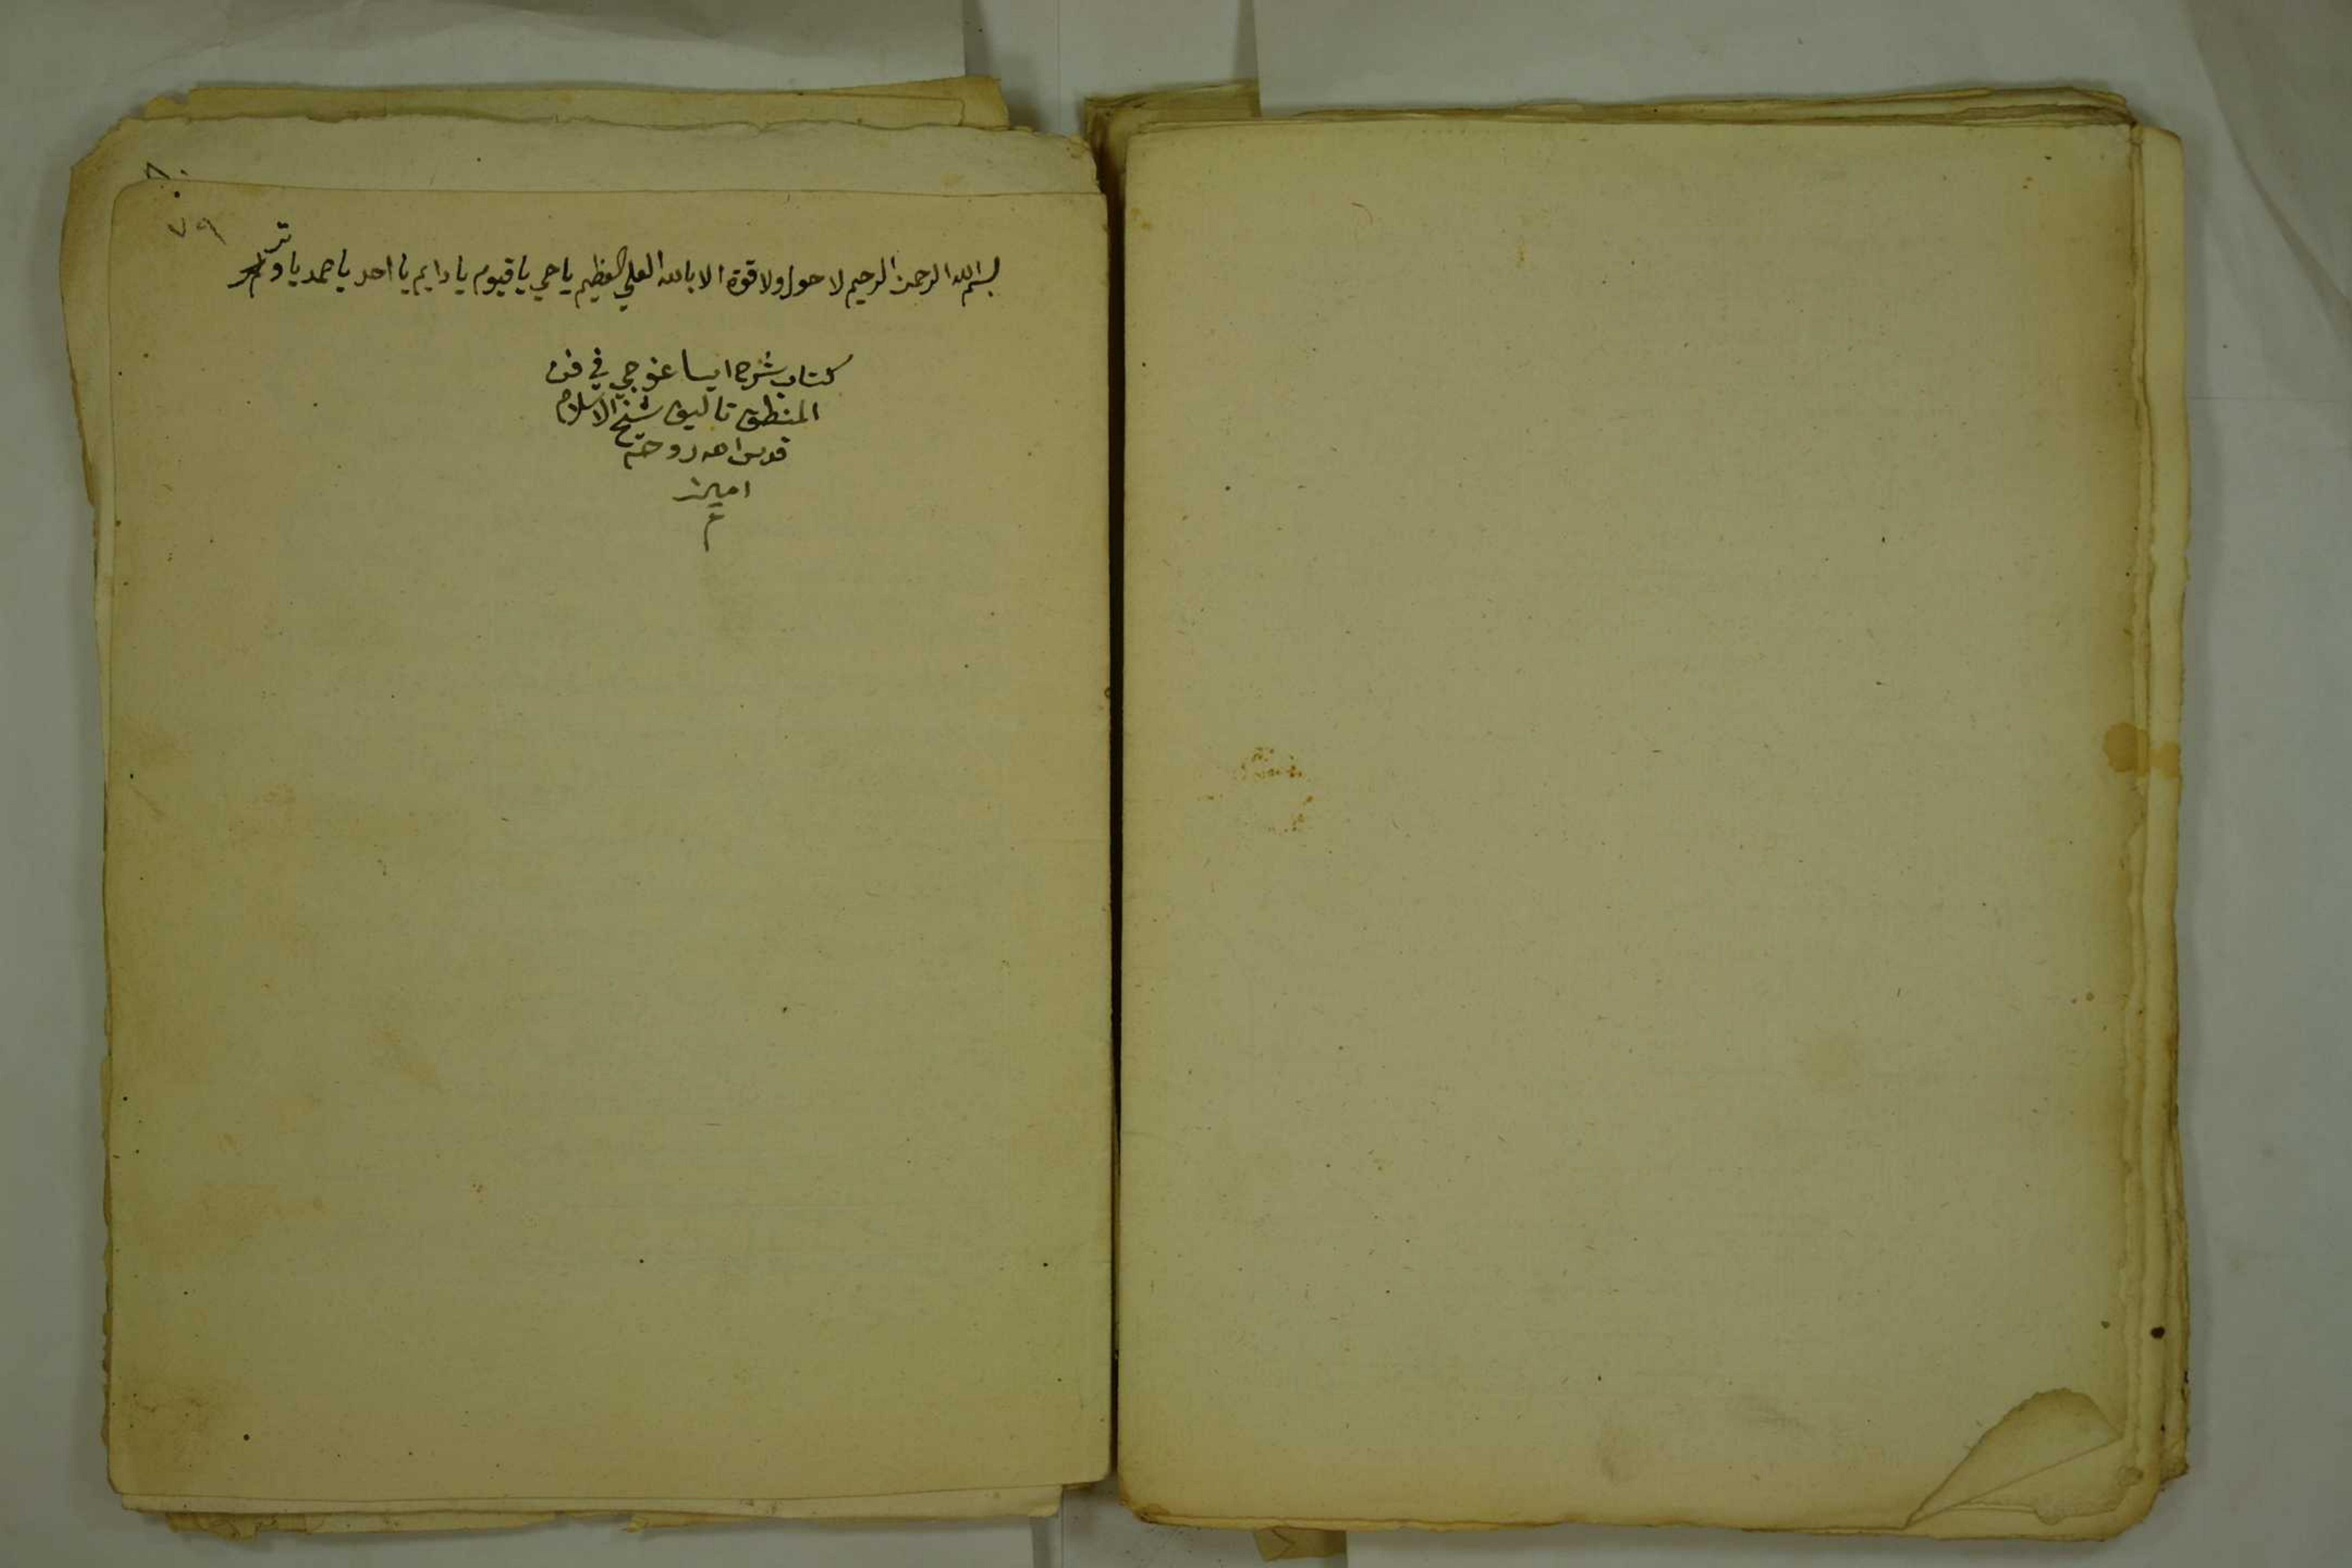 ٧٩
بسم الله الرحمن الرحيم لا حول ولا قوة الا بالله العلي العظيم يا حي يا قيوم يا دايم يا احد يا صمد يا وتر
كتاب شرح ايساغوجي في فن
المنطق تاليف شيخ الاسلام
قدس الله روحه
امين
م